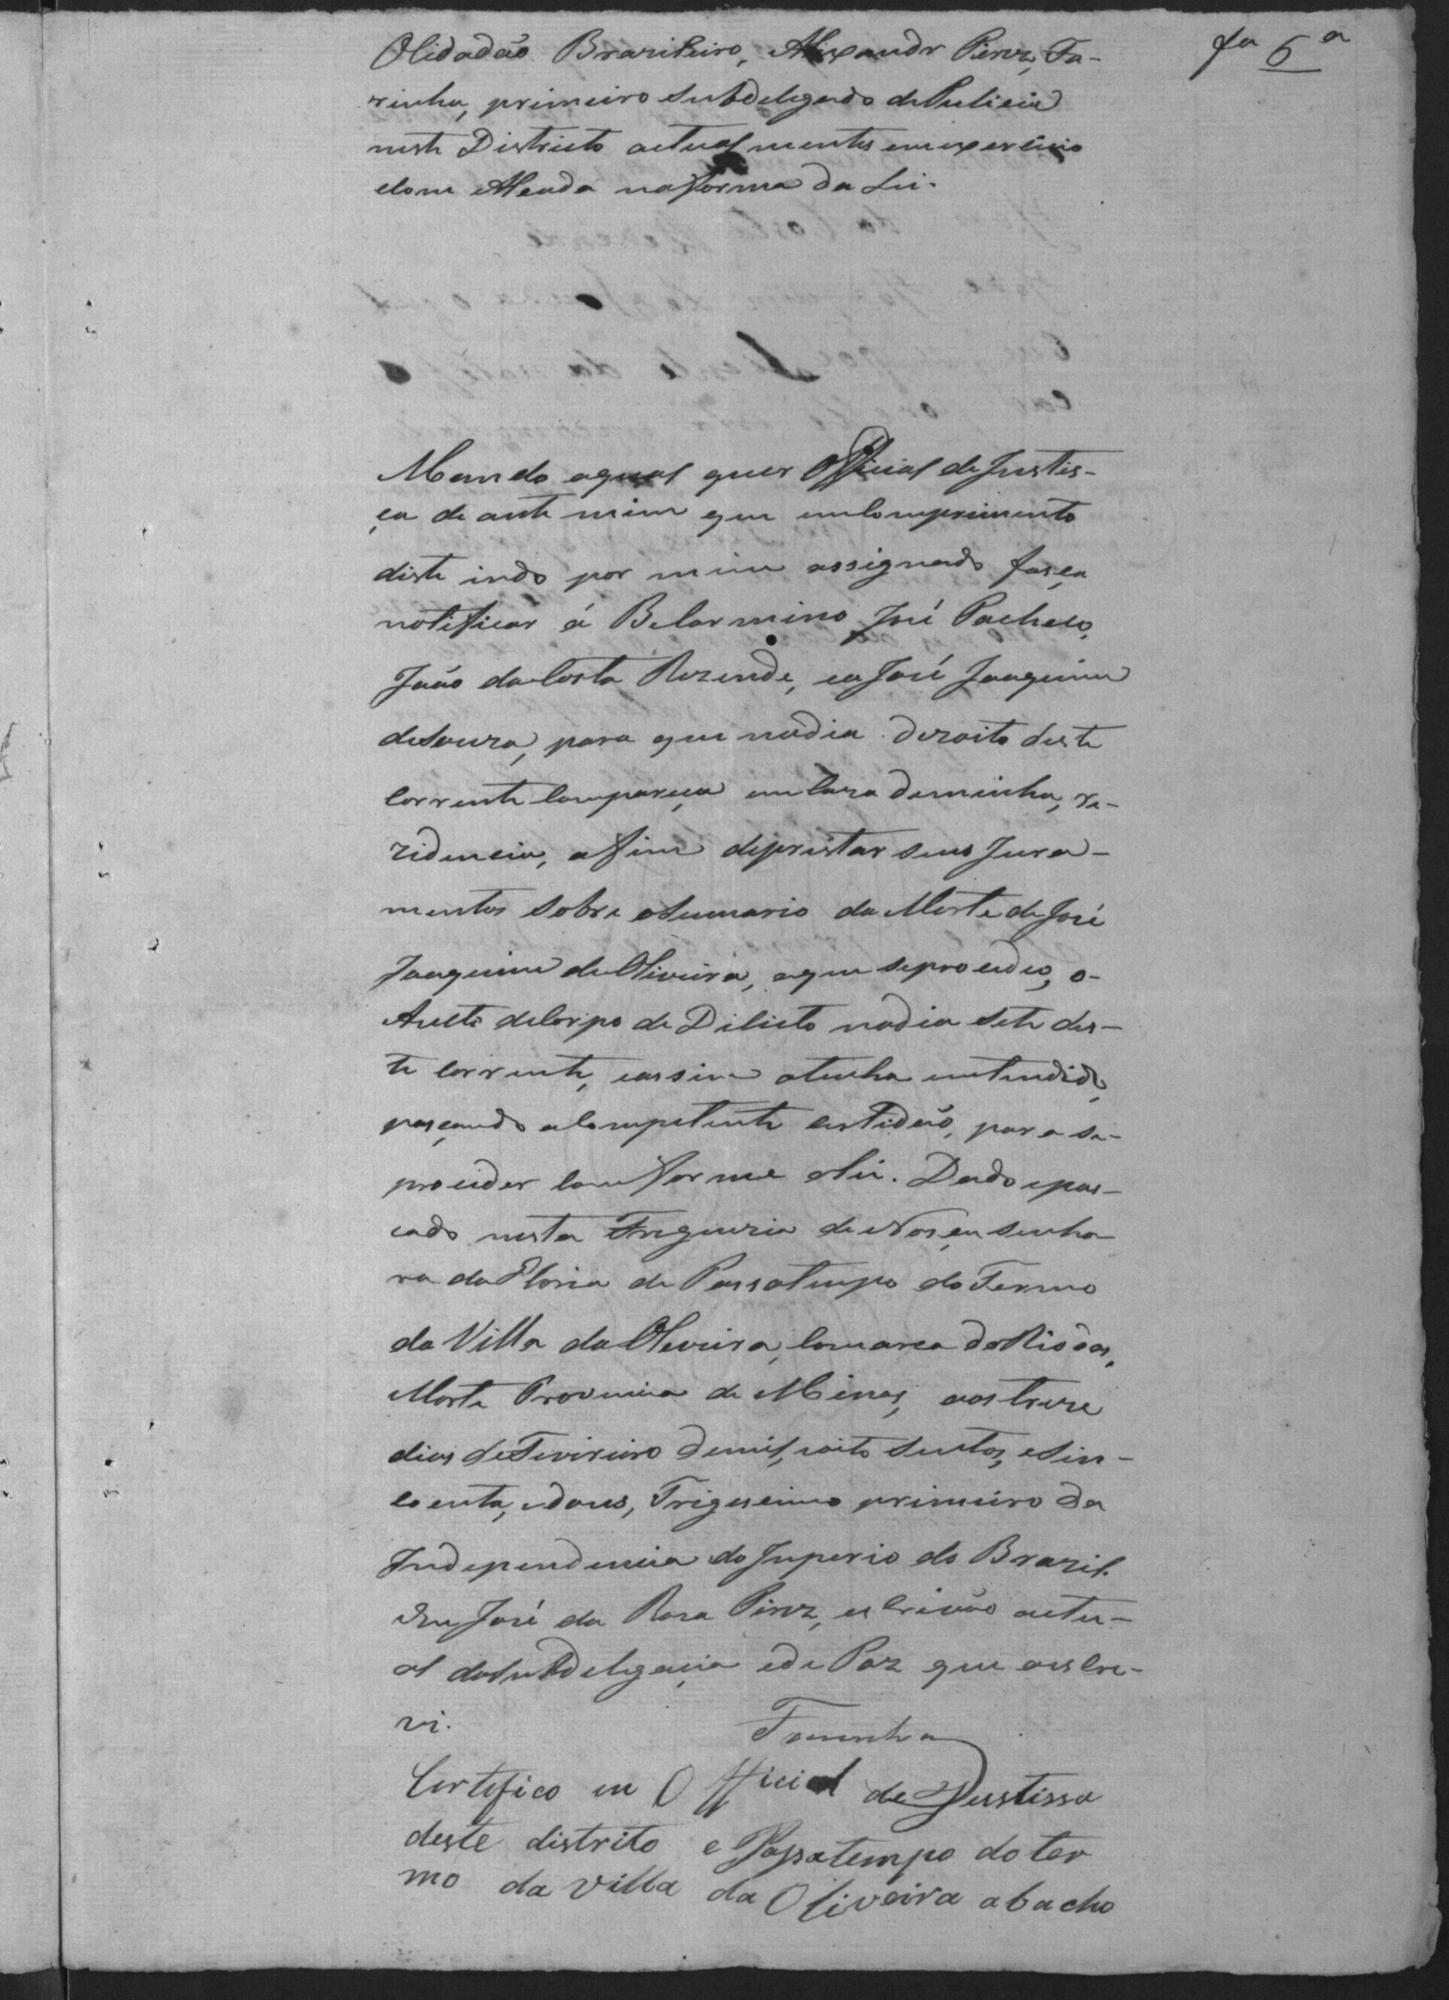 fa 6a
Cidadão Brazileiro, Alixandr Pirez, Fa-
rinha, primeiro Subdelegado de Pulicia
neste Districto actual mentes em exercicio
com Alsada na forma da Lei.
Mando aqual quer Official de Justis-
ça de ante mim que em comprimento
diste indo por mim assignado fasça
notificar á Belarmino José Pacheco,
João da Costa Rezende, ea José Joaquim
de Souza, para que nodia dezoito deste
corrente compareça em Caza deminha, re-
zidencia, afim deprestar seus Jura-
mentos sobre oSumario da Morte de José
Joaquim de Oliveira, aque seprocedeo, o-
Aucto deCorpo de Dilicto nodia Sete des-
te corrente, eassim otenha entendido,
pasçando aCompetente Certidão, para se-
proceder comforme aLei. Dado epas-
cado nesta Freguezia de Nosça Senho-
ra da Gloria de Passatempo do Termo
da Villa da Oliveira, Comarca do Rio das,
Morte Provincia de Minas, aos treze
dias de Fevireiro demil, eoito Sentos, eSin-
coenta, edous, Trigesimo primeiro da
Independencia do Imperio do Brazil.
Eu José da Roza Pirez, escrivão actu-
al daSubdelegaçia ede Paz que oescre-
vi.
Farinha
Certefico eu Official de Justissa
deste distrito e Passatempo do ter
mo da villa da Oliveira abacho